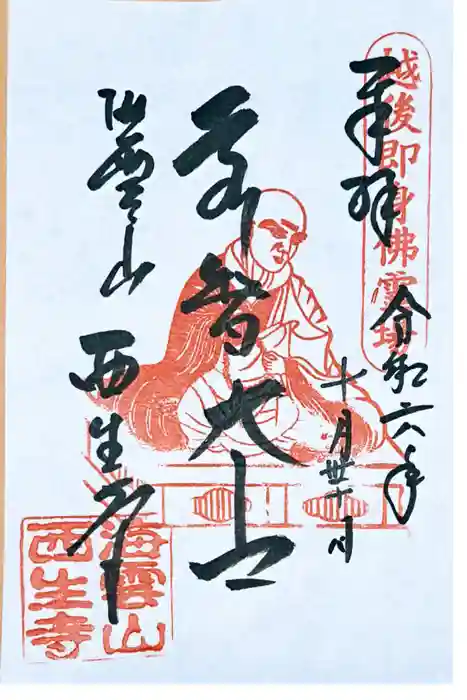 越後即身佛霊場
奉拝
令和六年
十月
智大士
海雲山
西生寺
海雲山
西生寺